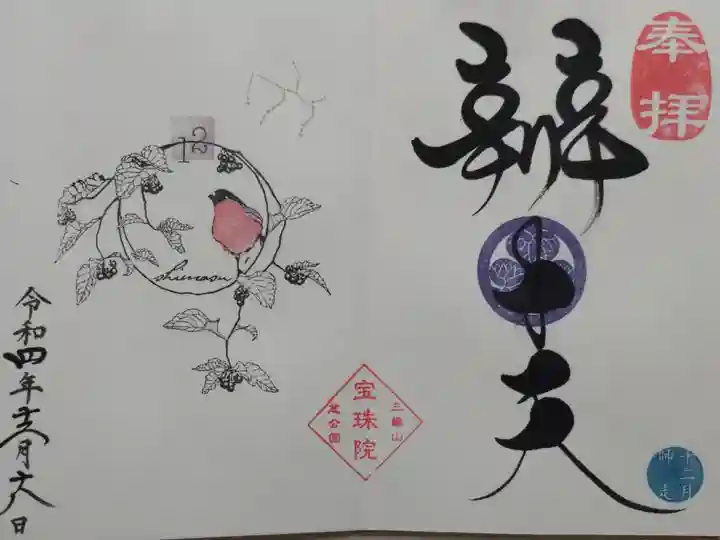 奉拝
辨才天
十二月
師走
三縁山
宝珠院
芝公園
12
shiwasu
令和四年十二月
日